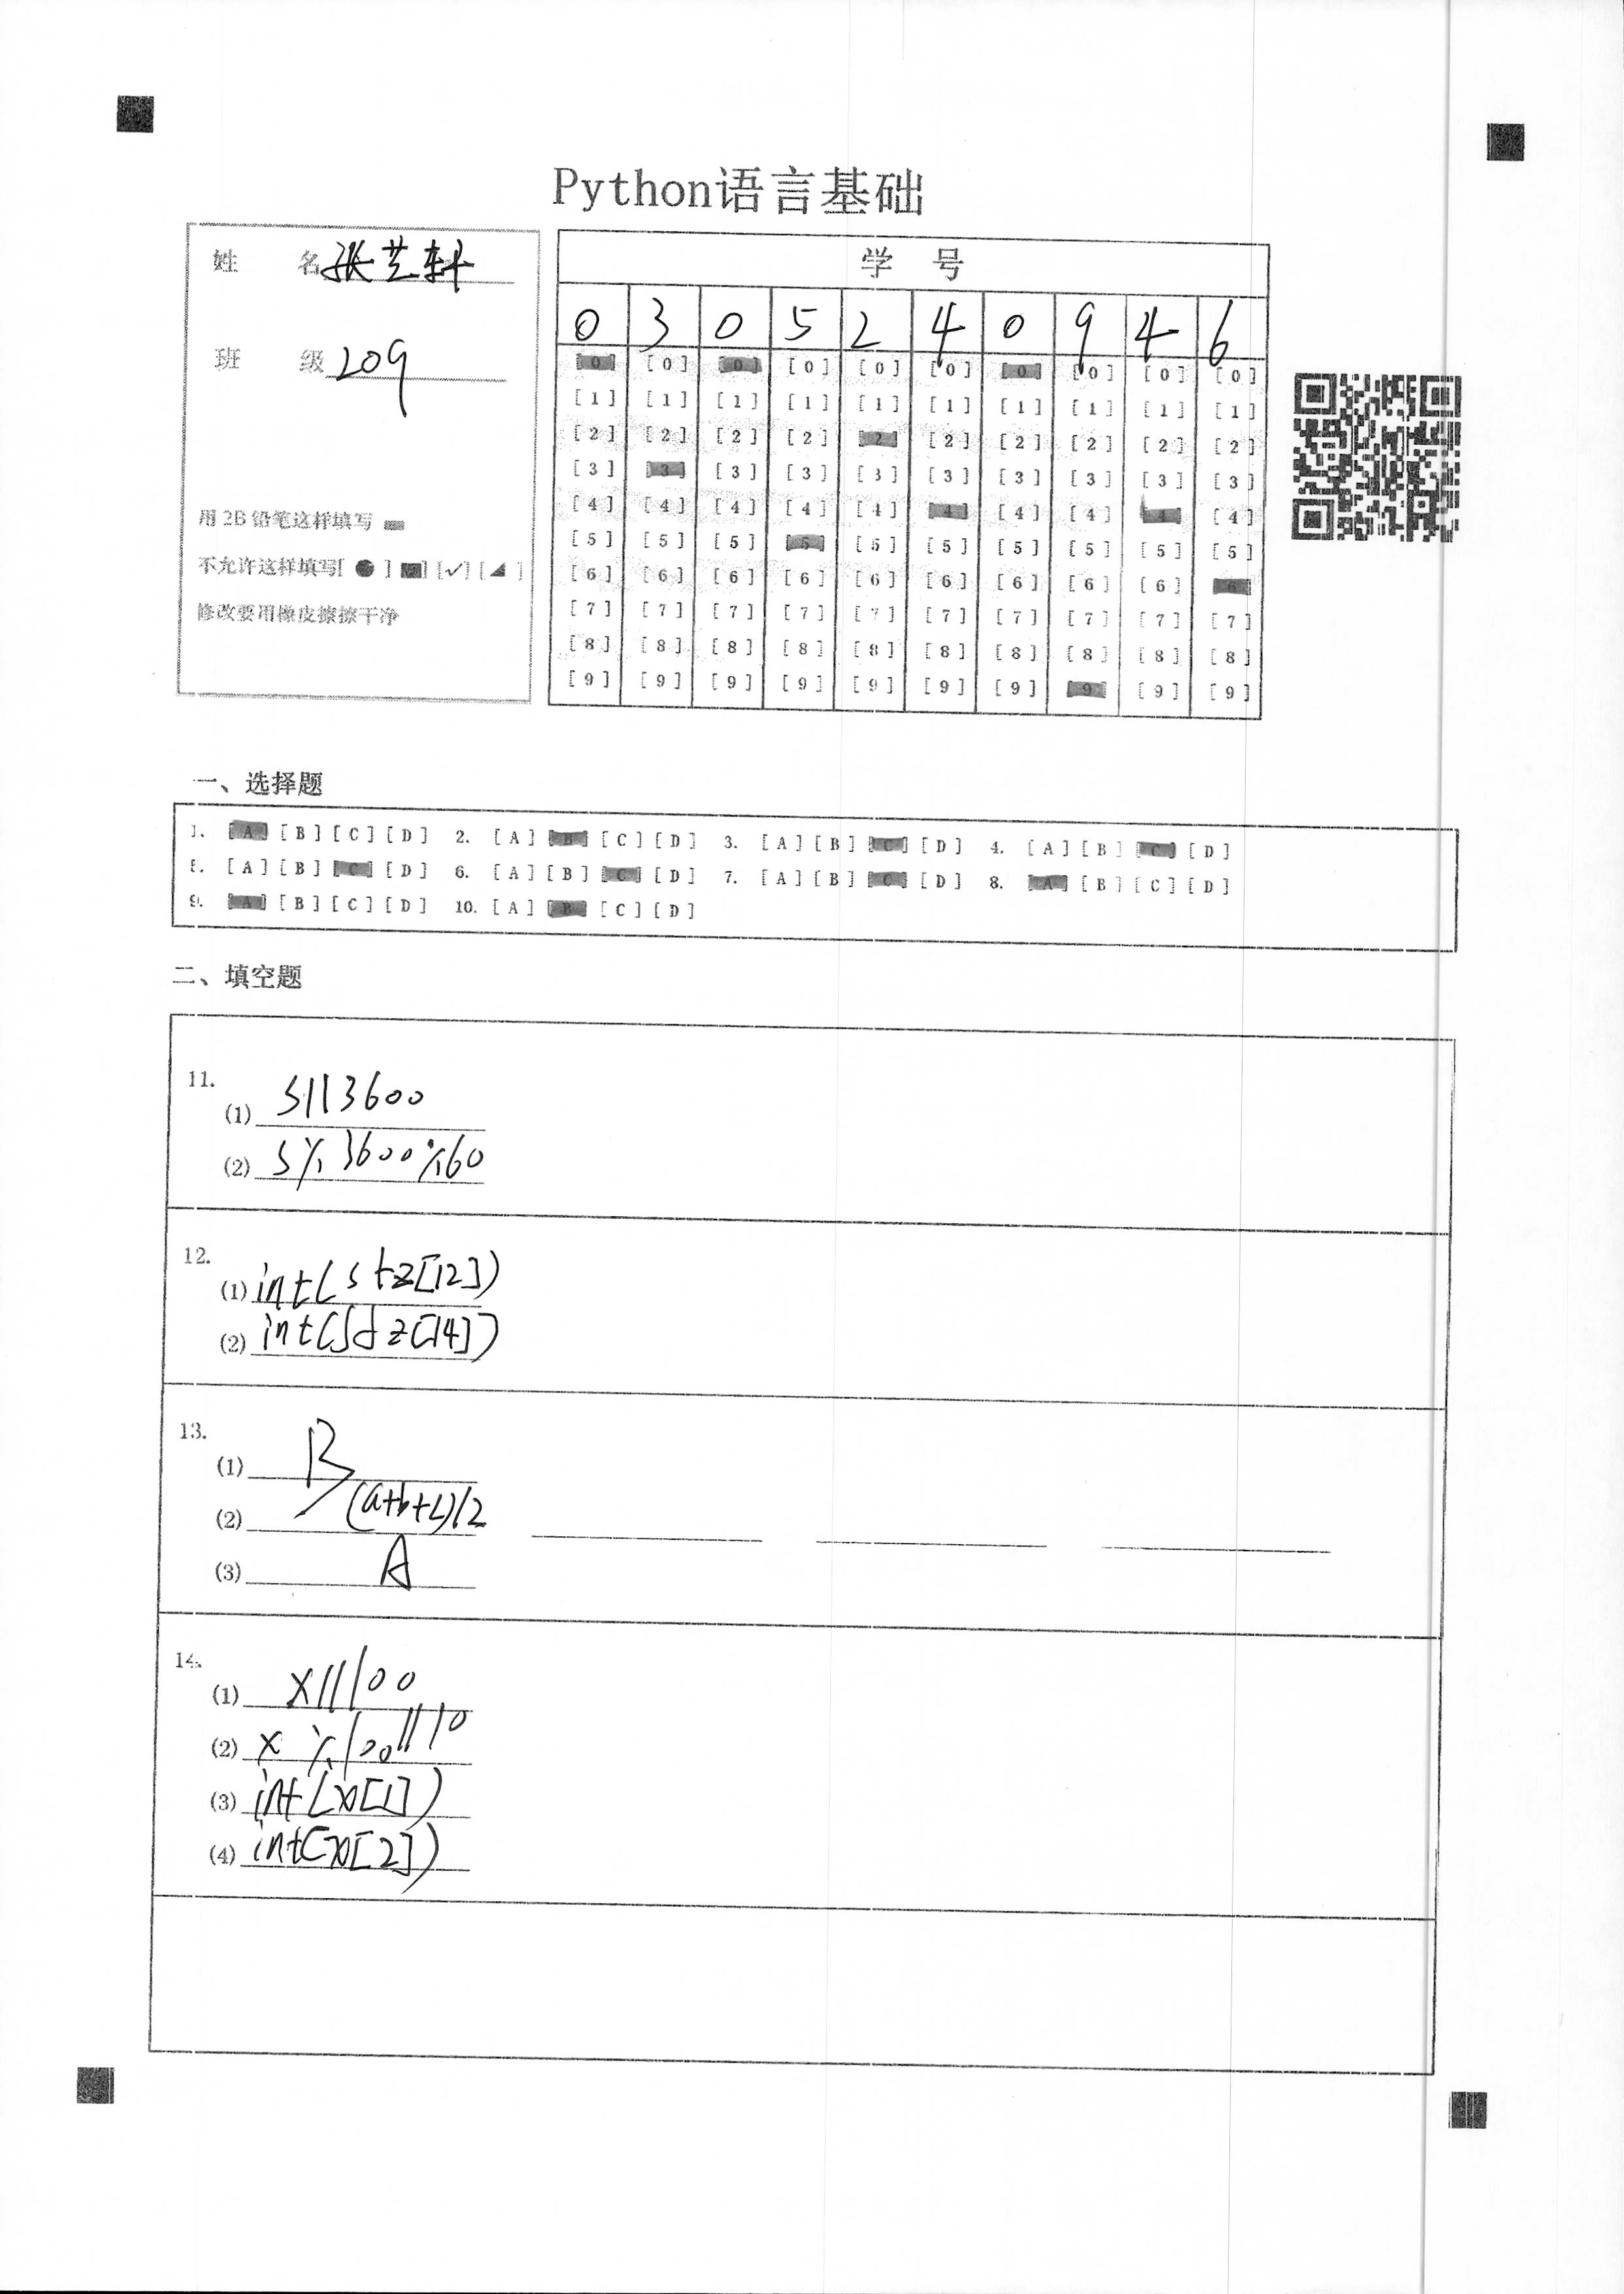 Python语言基础
姓 名 张芝轩
班 级 209
用 2B 铅笔这样填写
不允许这样填写[ ● ] [■] [✓] [◢ ]
修改要用橡皮擦擦干净
学 号
0 3 0 5 2 4 0 9 4 6
[0] [0] [0] [0] [0] [0] [0] [0] [0] [0]
[1] [1] [1] [1] [1] [1] [1] [1] [1] [1]
[2] [2] [2] [2] [2] [2] [2] [2] [2] [2]
[3] [3] [3] [3] [3] [3] [3] [3] [3] [3]
[4] [4] [4] [4] [4] [4] [4] [4] [4] [4]
[5] [5] [5] [5] [5] [5] [5] [5] [5] [5]
[6] [6] [6] [6] [6] [6] [6] [6] [6] [6]
[7] [7] [7] [7] [7] [7] [7] [7] [7] [7]
[8] [8] [8] [8] [8] [8] [8] [8] [8] [8]
[9] [9] [9] [9] [9] [9] [9] [9] [9] [9]
一、选择题
1. [A] [B] [C] [D] 2. [A] [B] [C] [D] 3. [A] [B] [C] [D] 4. [A] [B] [C] [D]
5. [A] [B] [C] [D] 6. [A] [B] [C] [D] 7. [A] [B] [C] [D] 8. [A] [B] [C] [D]
9. [A] [B] [C] [D] 10. [A] [B] [C] [D]
二、填空题
11.
(1) s//3600
(2) s%3600%60
12.
(1) int(stz[12])
(2) int(stz[14])
13.
(1) B
(2) (a+b+c)/2
(3) A
14.
(1) x//100
(2) x%100//10
(3) int(x[1])
(4) int(x[2])